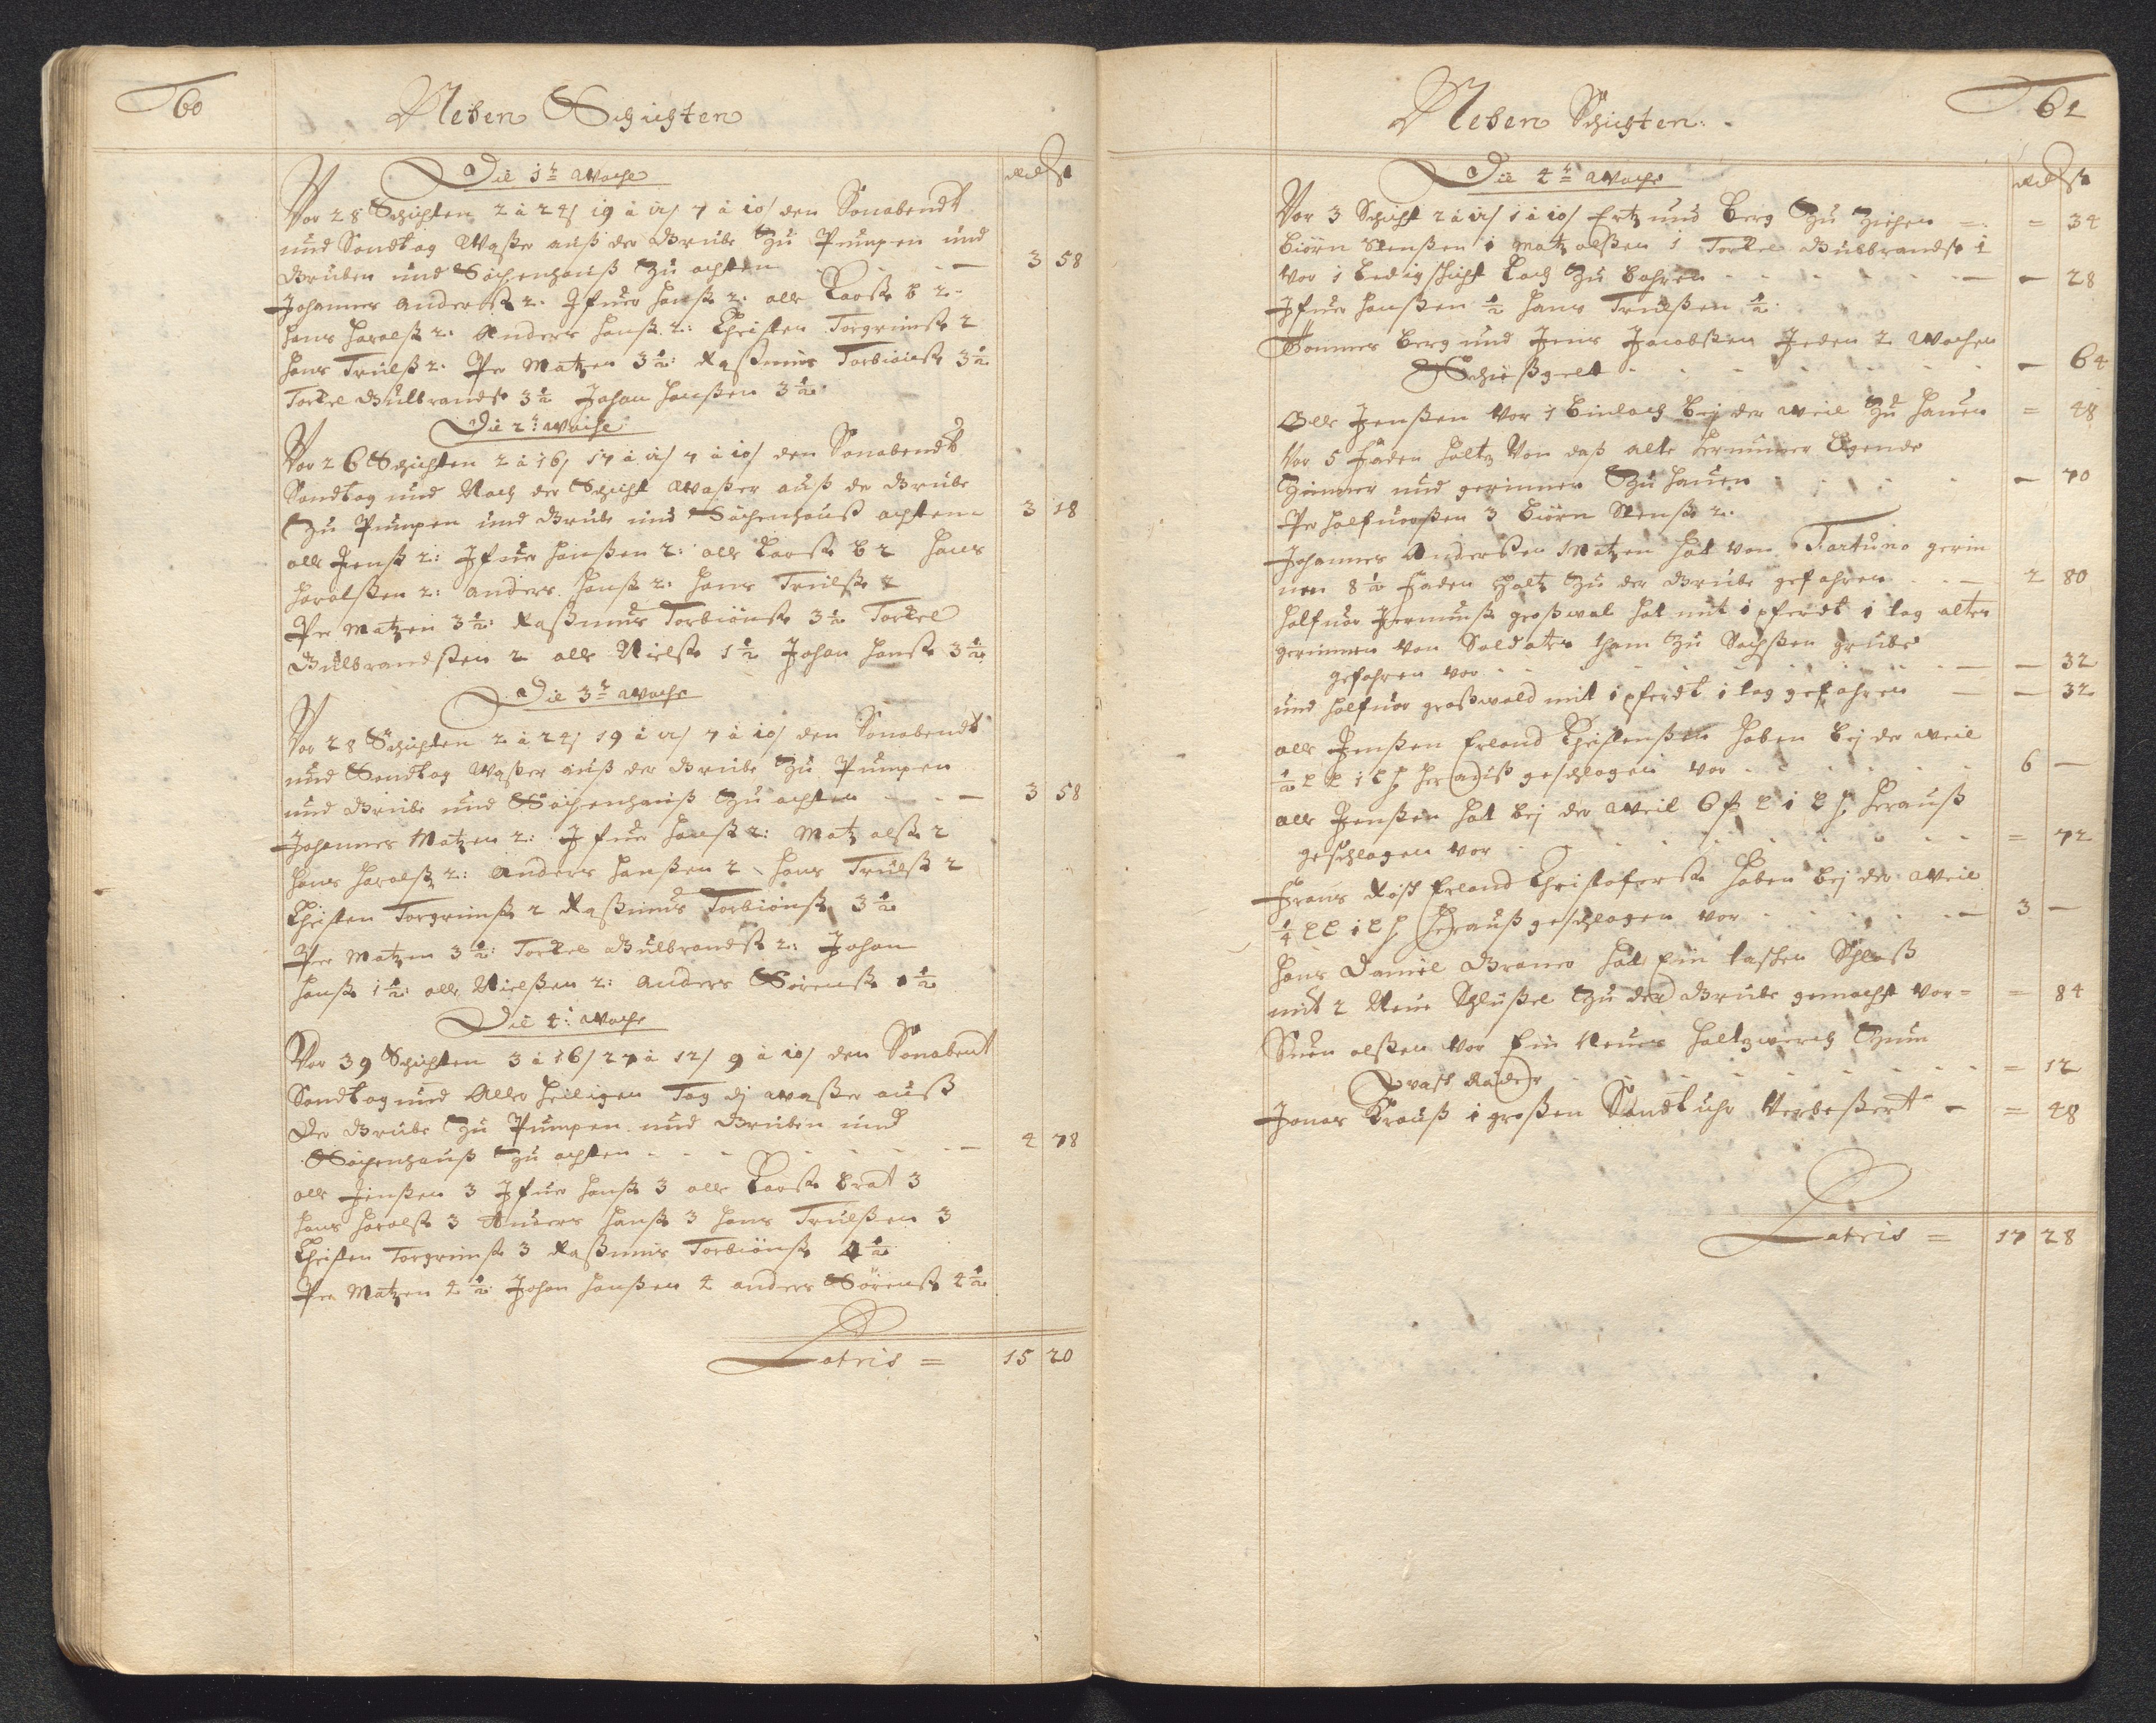 60
Neben Schichten
Rd ß
Die 1te Woche
Vor 28 Schichten 2 à 24/ 19 à 12/ 7 à 10/ den Sonabendt
und Sondtag Waßer auß der Grube Zu Pumpen und
Gruben und Sächenhauß Zu achten - - - 3 58
Johannes Anderß 2. Ifuer Hanß 2: Olle Larß B 2-
Hans Haralß 2: Anders Hanß 2: Christen Torgrimß 2
Hans Trulß 2. Per Matzen 3½: Raßmus Torbiönß 3½
Torkel Gulbrandß 3½ Johan Hanßen 3½
Die 2te Woche
Vor 26 Schichten 2 à 16/ 17 à 12/ 7 à 10/ den Sonabendt
Sondtag und Nach der Schicht Waßer auß der Grube
Zu Pumpen und Grube und Sächenhauß achten 3 18
Olle Jenß 2: Ifuer Hanßen 2: Olle Larß B 2 Hans
Haralßen 2: Anders Hanß 2: Hans Trulß 2
Per Matzen 3½: Raßmus Torbiönß 3½ Torkel
Gulbrandßen 2 Olle Nielß 1½ Johan Hanß 3½
Die 3te Woche
Vor 28 Schichten 2 à 24/ 19 à 12/ 7 à 10/ den Sonabendt
und Sondtag Waßer auß der Grube Zu Pumpen
und Grube und Sächenhauß Zu achten - - - 3 58
Johannes Matzen 2: Ifuer Hanß 2: Matz Olß 2
Hans Haralß 2: Anders Hanßen 2 Hans Trulß 2
Christen Torgrimß 2 Raßmus Torbiönß 3½
Per Matzen 3½: Torkel Gulbrandß 2: Johan
Hanß 1½: Olle Nielßen 2: Anders Sörenß 1½
Die 4te Woche
Vor 39 Schichten 3 à 16/ 27 à 12/ 9 à 10/ den Sonabent
Sondtag und Aller Heiligen Tag dz Waßer auß
Der Grube Zu Pumpen und Gruben und
Sächenhauß Zu achten - - - 4 78
Olle Jenßen 3 Ifuer Hanß 3 Olle Larß Brat 3
Hans Haralß 3 Anders Hanß 3 Hans Trulßen 3
Christen Torgrimß 3 Raßmus Torbiönß 4½
Per Matzen 4½ Johan Hanßen 4 Anders Sörenß 4½
Latris = 15 20
61
Neben Schichten.
Rd ß
Die 4te Woche
Vor 3 Schicht 2 à 12/ 1 à 10/ Ertz und Berg Zu Ziehen = 34
Biörn Stenßen 1 Matz Olßen 1 Torkel Gulbrandß 1
Vor 1 Ledig schicht Loch Zu bohren - - - 28
Ifuer Hanßen ½ Hans Trulßen ½
Hannes Berg und Jens Jacobßen Jeden 2 Wochen
Schießgelt - - - 64
Olle Jenßen Vor 1 Einlach Bey der Weil Zu Hauen = 48
Vor 5 Faden Holtz Von daß alte
Zimmer und gerinner Zu Hauen - - - 70
Per Halfuorßen 3 Biörn Stenß 2.
Johannes Anderßen Matzen Hat von Fortuna gerin
nen 8½ Faden Holtz Zu der Grube gefahren - - 2 80
Halfuor großwal Hat mit 1 pferdt 1 tag alten
gerinnen Von Soldaten tham Zu Sachßen grube
gefahren Vor - - - 32
und Halfuor großwold mit 1 pferdt 1 tag gefahren - - 32
Olle Jenßen Erland Christenßen Haben Bej der Weil
½ L L 1 L h Herauß geschlagen Vor - - - 6 -
Olle Jenßen Hat Bej der Weil 6 ß L 1 L h Herauß
geschlagen Vor - - - = 72
Frans Röst Erland Christoferß Haben Bej der Weil
¼ L L 1 L h Herauß geschlagen Vor - - - 3 -
Hans Daniel Braner Hat Ein taschen Schloß
mit 2 Neue Schlüßel Zu der Grube gemacht Vor = = 84
Suen Olßen Vor Ein Neues Holtzwerch Zum
Räder - - - = 12
Jonas Krauß 1 großen Sandtuhr Verbeßert - = 48
Latris = 17 28